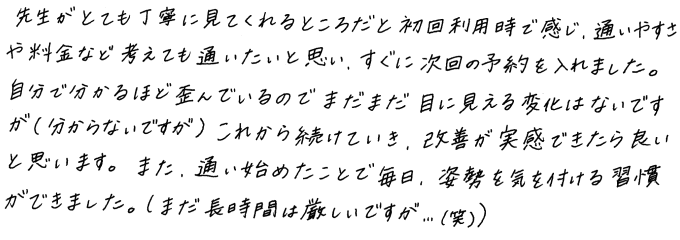 先生がとても丁寧に見てくれるところだと初回利用時で感じ、通いやすさ
や料金など考えても通いたいと思い、すぐに次回の予約を入れました。
自分で分かるほど歪んでいるのでまだまだ目に見える変化はないです
が(分からないですが)これから続けていき、改善が実感できたら良い
と思います。また、通い始めたことで毎日、姿勢を気を付ける習慣
ができました。(まだ長時間は厳しいですが…(笑))